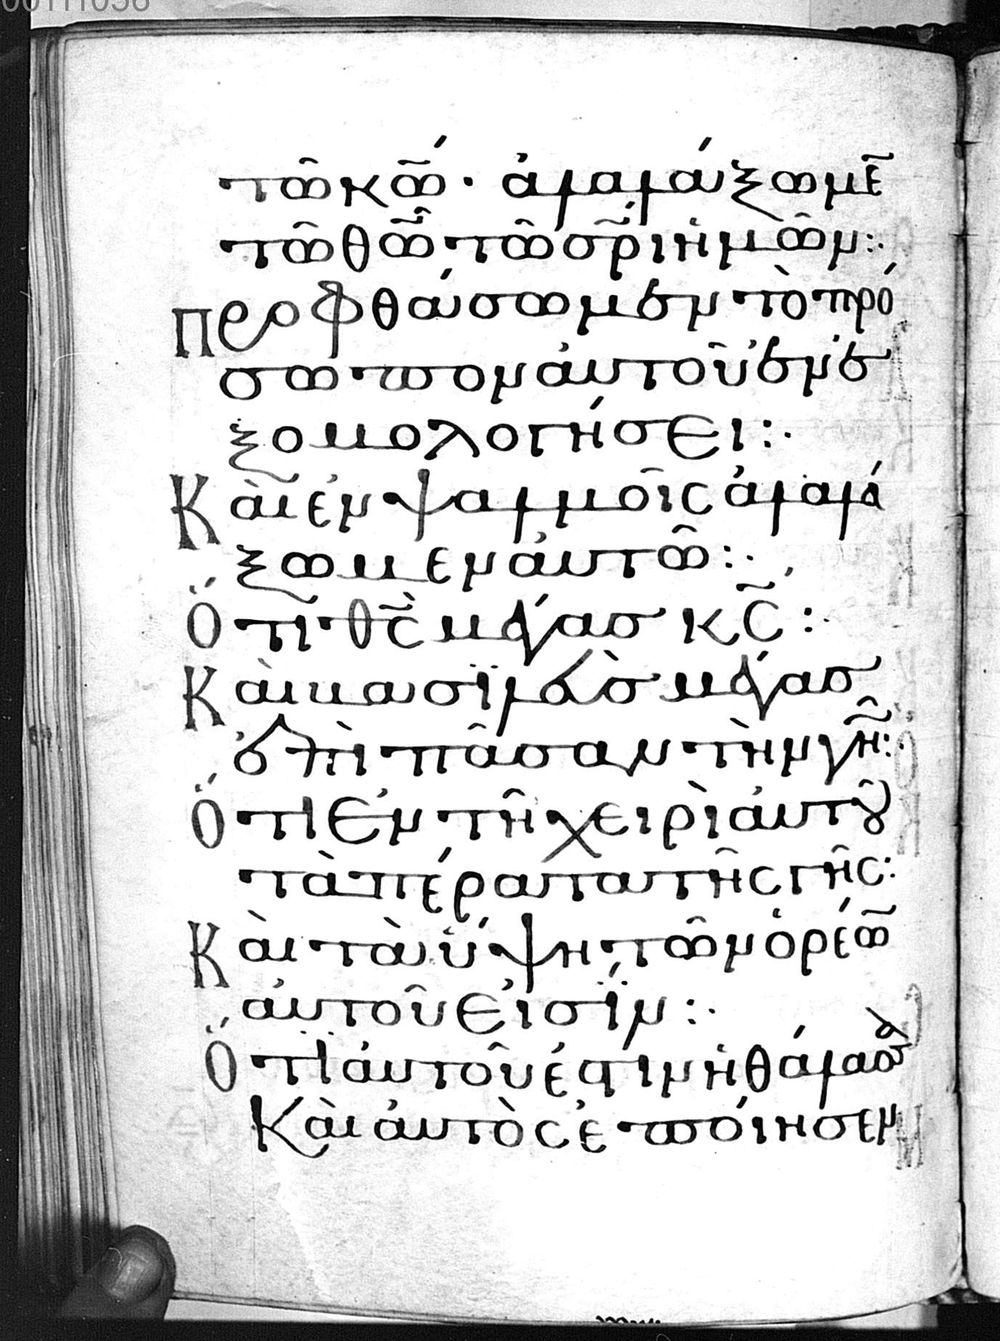 00111056
τῶ κω̅· ἀλαλάξωμε̅
τῶ θω̅ τῶ σρ̅ι ἡμῶν:·
Προφθάσωμεν τὸ πρό
σωπον ἀυτοῦ ἐν ἐ
ξομολογήσει:·
Κὰι ἐν ψαλμοῖς ἀλαλά
ξωμεν ἀυτῶ:·
Ὅτι θς̅ μέγας κς̅:·
Κὰι βασϊλεὺς μέγας
ἐπὶ πᾶσαν τὴν γῆ̅:·
Ὅτι ἐν τῆ χειρὶ ἀυτοῦ
τὰ πέρατα τῆς γῆς:
Κὰι τὰ ὕψη τῶν ὀρέω̅
ἀυτοῦ ἐισϊν:·
Ὅτι ἀυτοῦ ἐστιν ἡ θάλασσα
Κὰι ἀυτὸς ἐποίησεν